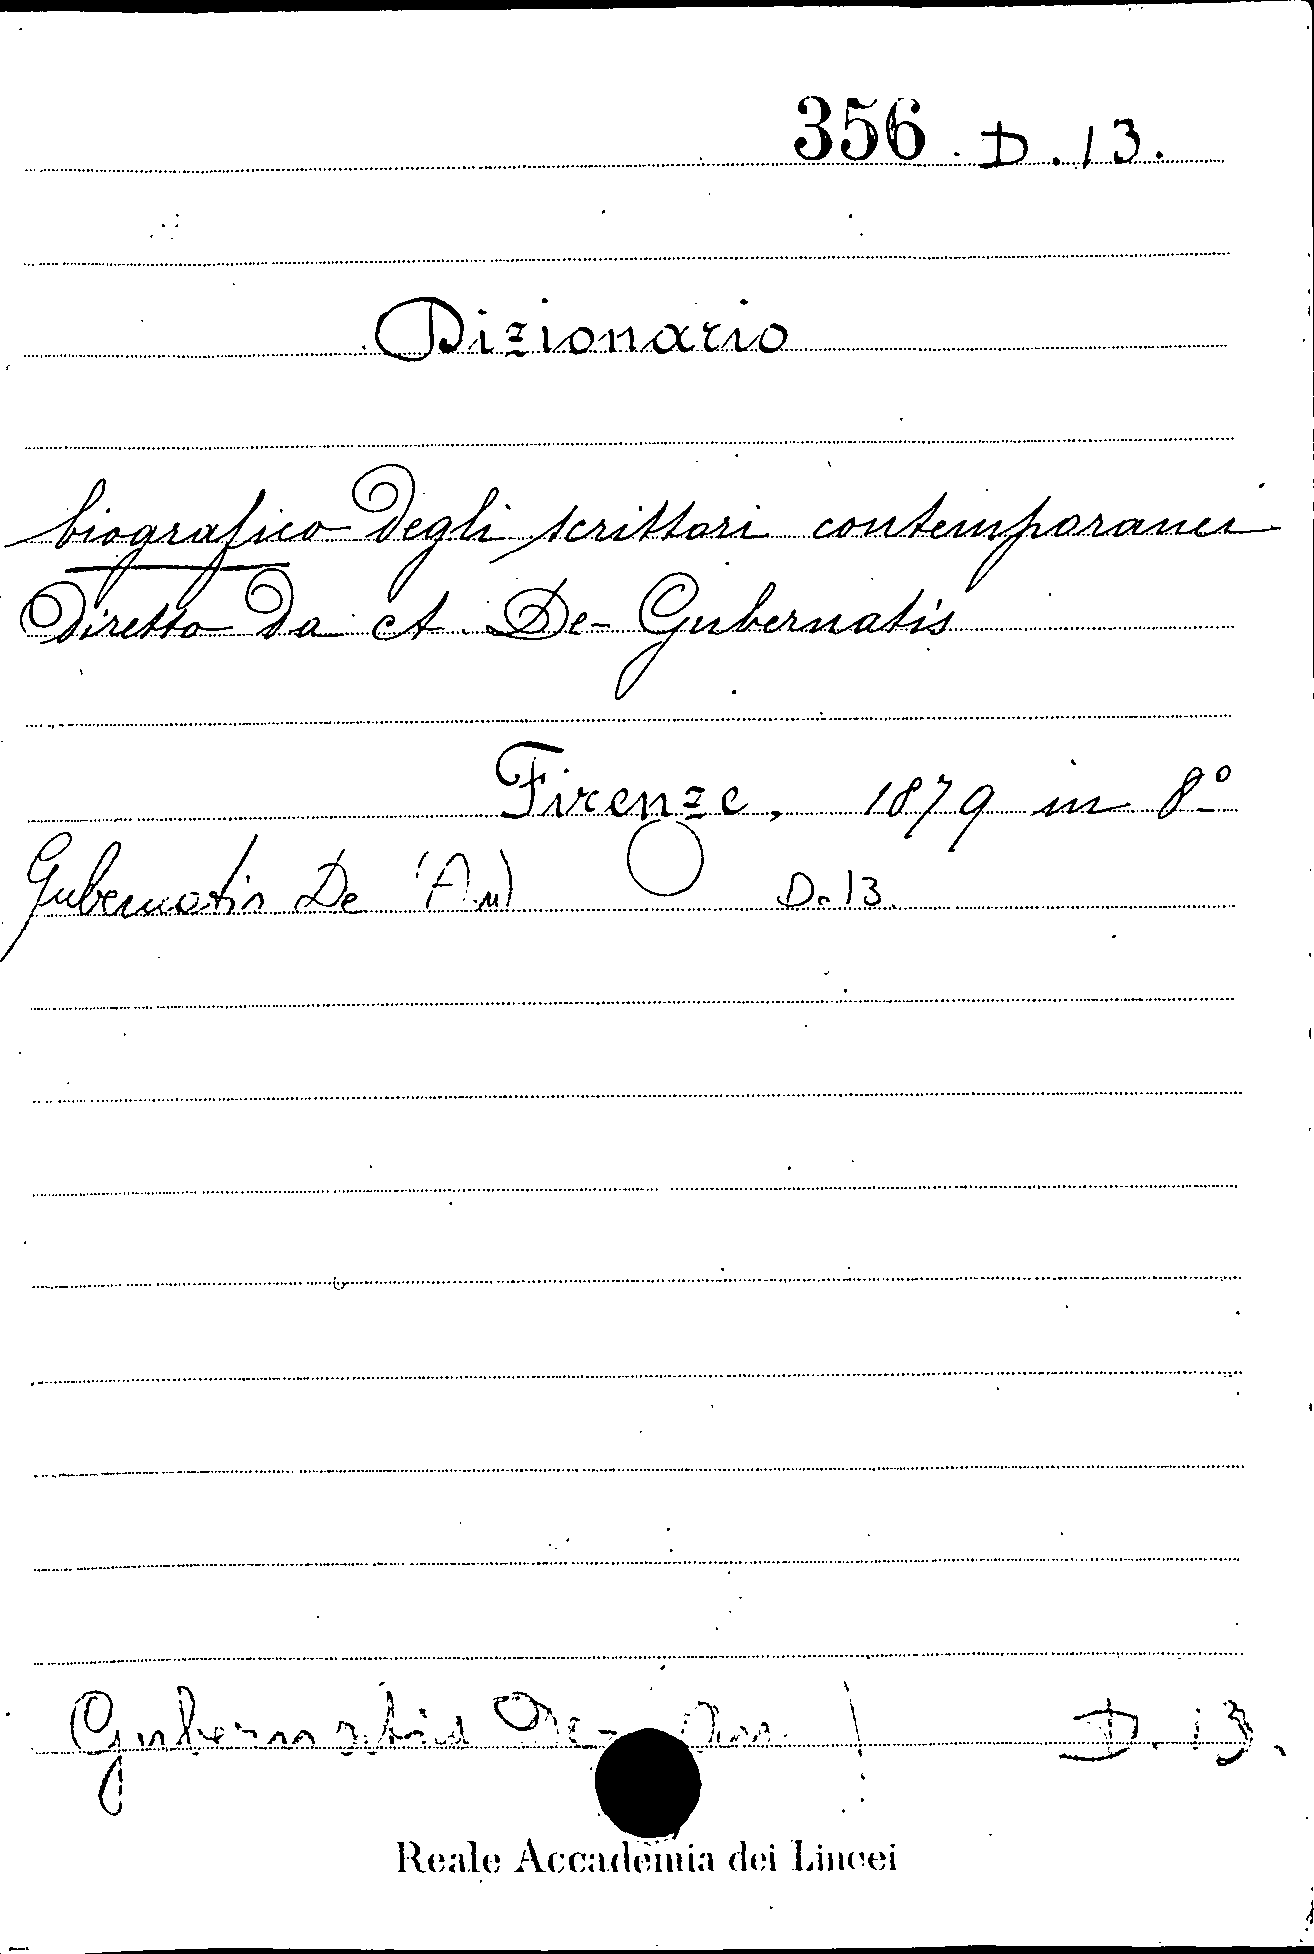 356. D. 13.
Dizionario
biografico degli scrittori contemporanei
diretto da A. De-Gubernatis
Firenze, 1879 in 8º
Gubernatis De (An) D. 13.
Gubernatis De- An ) D. 13.
Reale Accademia dei Lincei